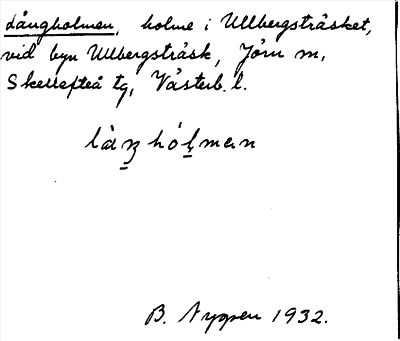 Långholmen, holme i Ullbergsträsket,
vid byn Ullbergsträsk, Jörn sn,
Skellefteå tg, Västerb. l.
B. Nygren 1932.